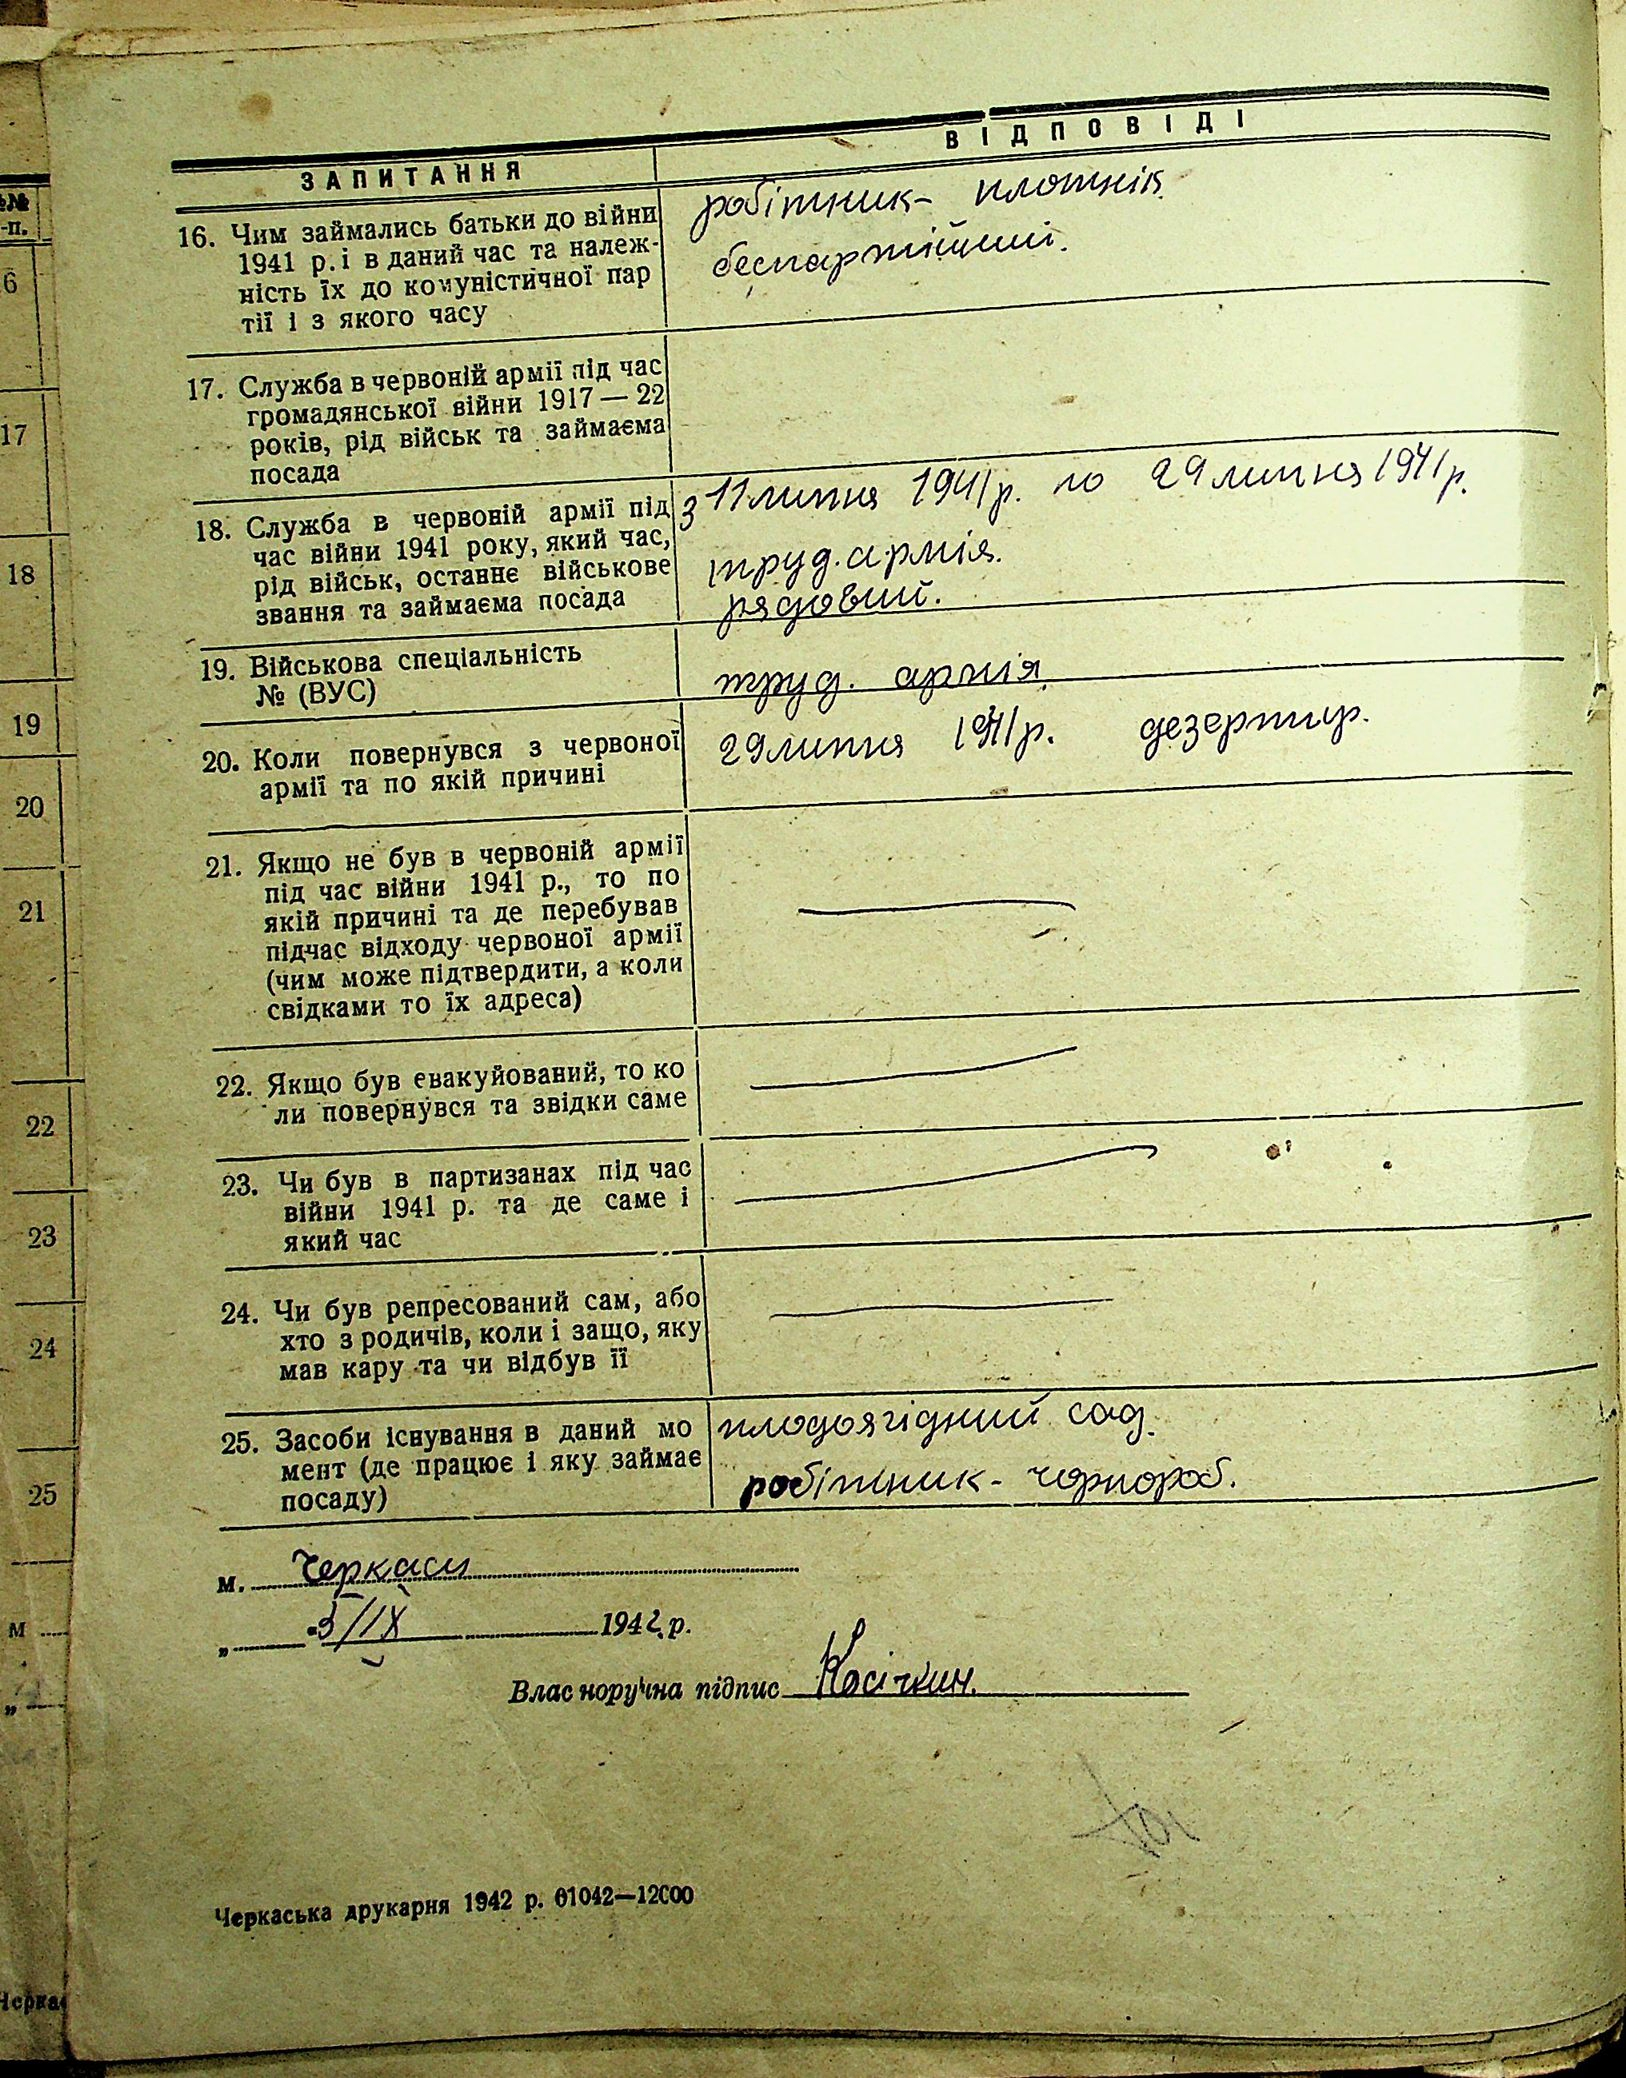 ЗАПИТАННЯ
ВІДПОВІДІ
16. Чим займались батьки до війни
1941 р. і в даний час та належ-
ність їх до комуністичної пар
тії і з якого часу
робітник- плотнік
беспартійний.
17. Служба в червоній армії під час
громадянської війни 1917 — 22
років, рід військ та займаєма
посада
18. Служба в червоній армії під
час війни 1941 року, який час,
рід військ, останнє військове
звання та займаєма посада
з 11 липня 1941 р. по 29 липня 1941 р.
труд. армія.
рядовий.
19. Військова спеціальність
№ (ВУС)
труд. армія
20. Коли повернувся з червоної
армії та по якій причині
29 липня 1941 р. дезертир.
21. Якщо не був в червоній армії
під час війни 1941 р., то по
якій причині та де перебував
підчас відходу червоної армії
(чим може підтвердити, а коли
свідками то їх адреса)
22. Якщо був евакуйований, то ко
ли повернувся та звідки саме
23. Чи був в партизанах під час
війни 1941 р. та де саме і
який час
24. Чи був репресований сам, або
хто з родичів, коли і защо, яку
мав кару та чи відбув її
25. Засоби існування в даний мо
мент (де працює і яку займає
посаду)
плодоягідний сад.
робітник- чорнороб.
м. Черкаси
„ 5/IX 1942 р.
Власноручна підпис Косічкин.
Черкаська друкарня 1942 р. 01042—12000
№№
-п.
6
17
18
19
20
21
22
23
24
25
м
„
Черка